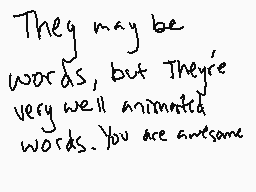 They may be
words, but They're
very well animated
words. You are awesome